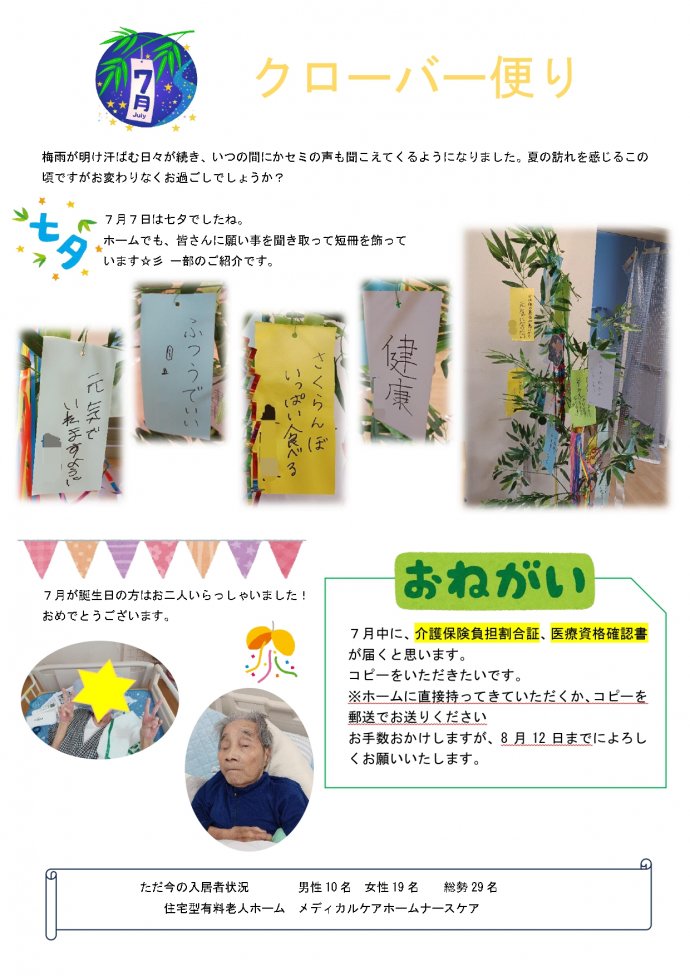 7
月
July
クローバー便り
梅雨が明け汗ばむ日々が続き、いつの間にかセミの声も聞こえてくるようになりました。夏の訪れを感じるこの
頃ですがお変わりなくお過ごしでしょうか？
七夕
７月７日は七夕でしたね。
ホームでも、皆さんに願い事を聞き取って短冊を飾って
います☆彡 一部のご紹介です。
元気で
いれますように
ふつうでいい
さくらんぼ
いっぱい食べる
健康
７月が誕生日の方はお二人いらっしゃいました！
おめでとうございます。
おねがい
７月中に、介護保険負担割合証、医療資格確認書
が届くと思います。
コピーをいただきたいです。
※ホームに直接持ってきていただくか、コピーを
郵送でお送りください
お手数おかけしますが、8 月 12 日までによろし
くお願いいたします。
ただ今の入居者状況 男性10名 女性19名 総勢29名
住宅型有料老人ホーム メディカルケアホームナースケア